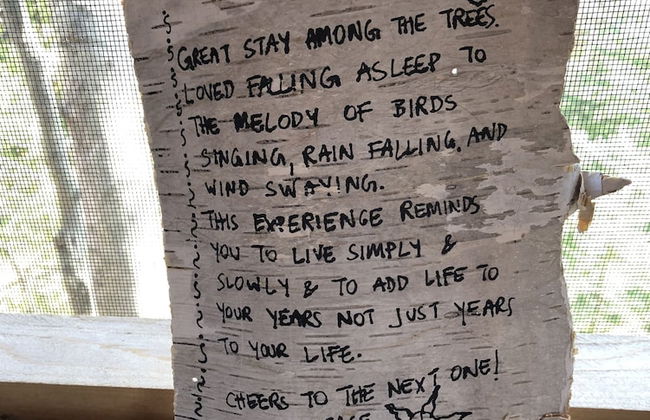 GREAT STAY AMONG THE TREES.
LOVED FALLING ASLEEP TO
THE MELODY OF BIRDS
SINGING, RAIN FALLING, AND
WIND SWAYING.
THIS EXPERIENCE REMINDS
YOU TO LIVE SIMPLY &
SLOWLY & TO ADD LIFE TO
YOUR YEARS NOT JUST YEARS
TO YOUR LIFE.
CHEERS TO THE NEXT ONE!